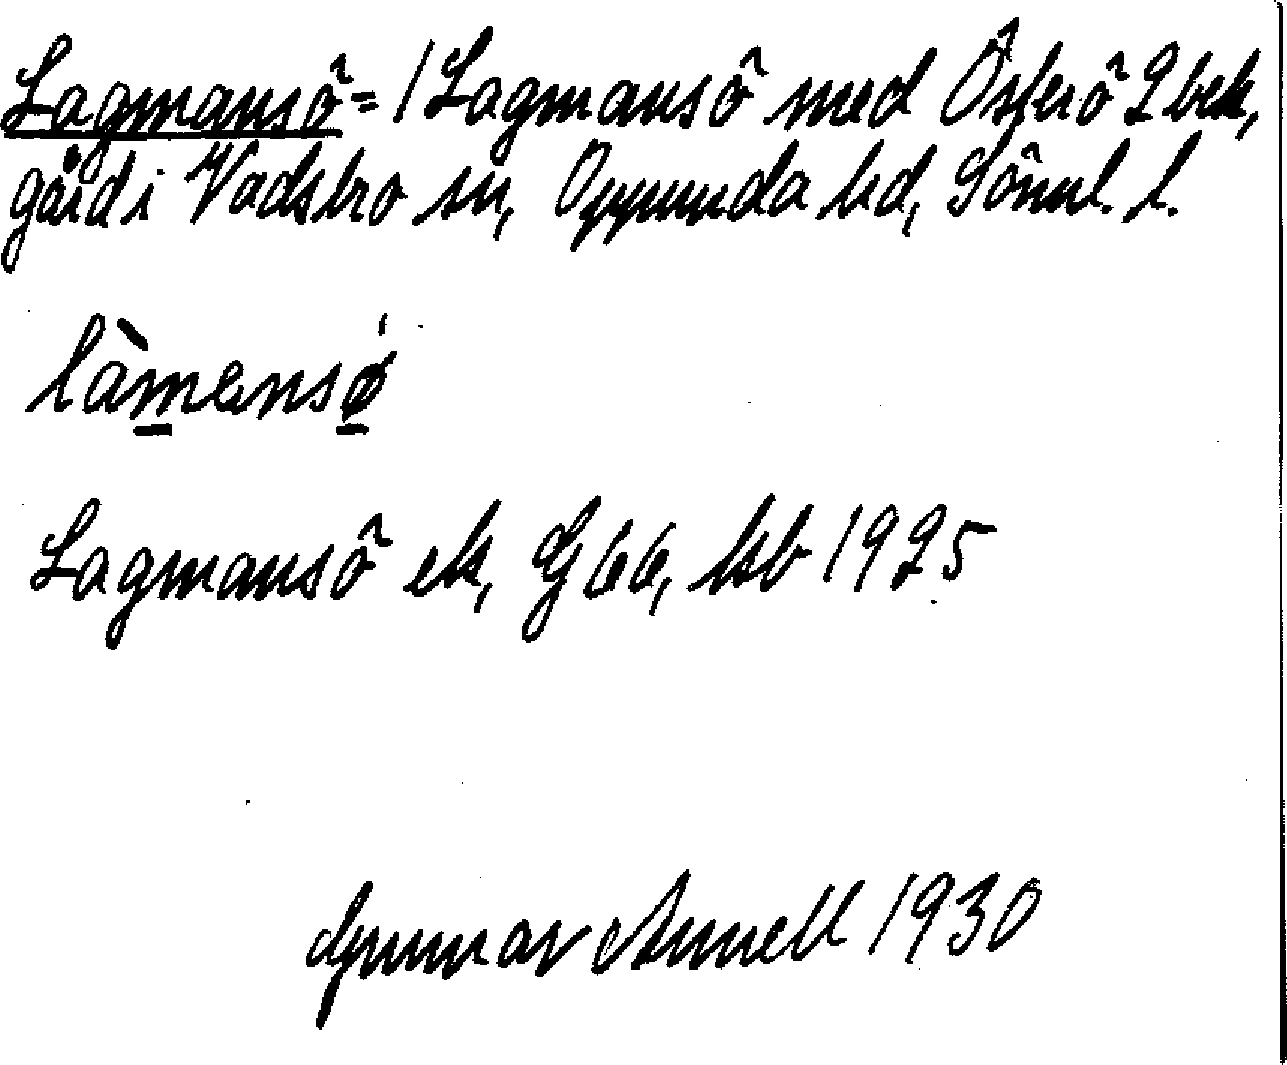 Lagmansö = 1 Lagmansö med Österö 2 bek,
gård i Vadsbro sn, Oppunda hd, Sörml. l.
làmensø
Lagmansö ek, G 66, hsb 1925
Gunnar Annell 1930